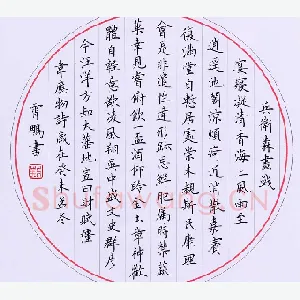 兵衛森畫戟
宴寢凝清香海上風雨至
逍遙池閣涼煩疴近消散嘉賓
復滿堂自慚居處崇未睹斯民康理
會是非遣性達形迹忘鮮肥屬時禁蔬
果幸見嘗俯飲一盃酒仰聆金玉章神歡
體自輕意欲凌風翔吳中盛文史群彦
今汪洋方知大藩地豈曰財賦强
韋應物詩歲在癸未孟冬
霄鵬書
Shufawang.CN